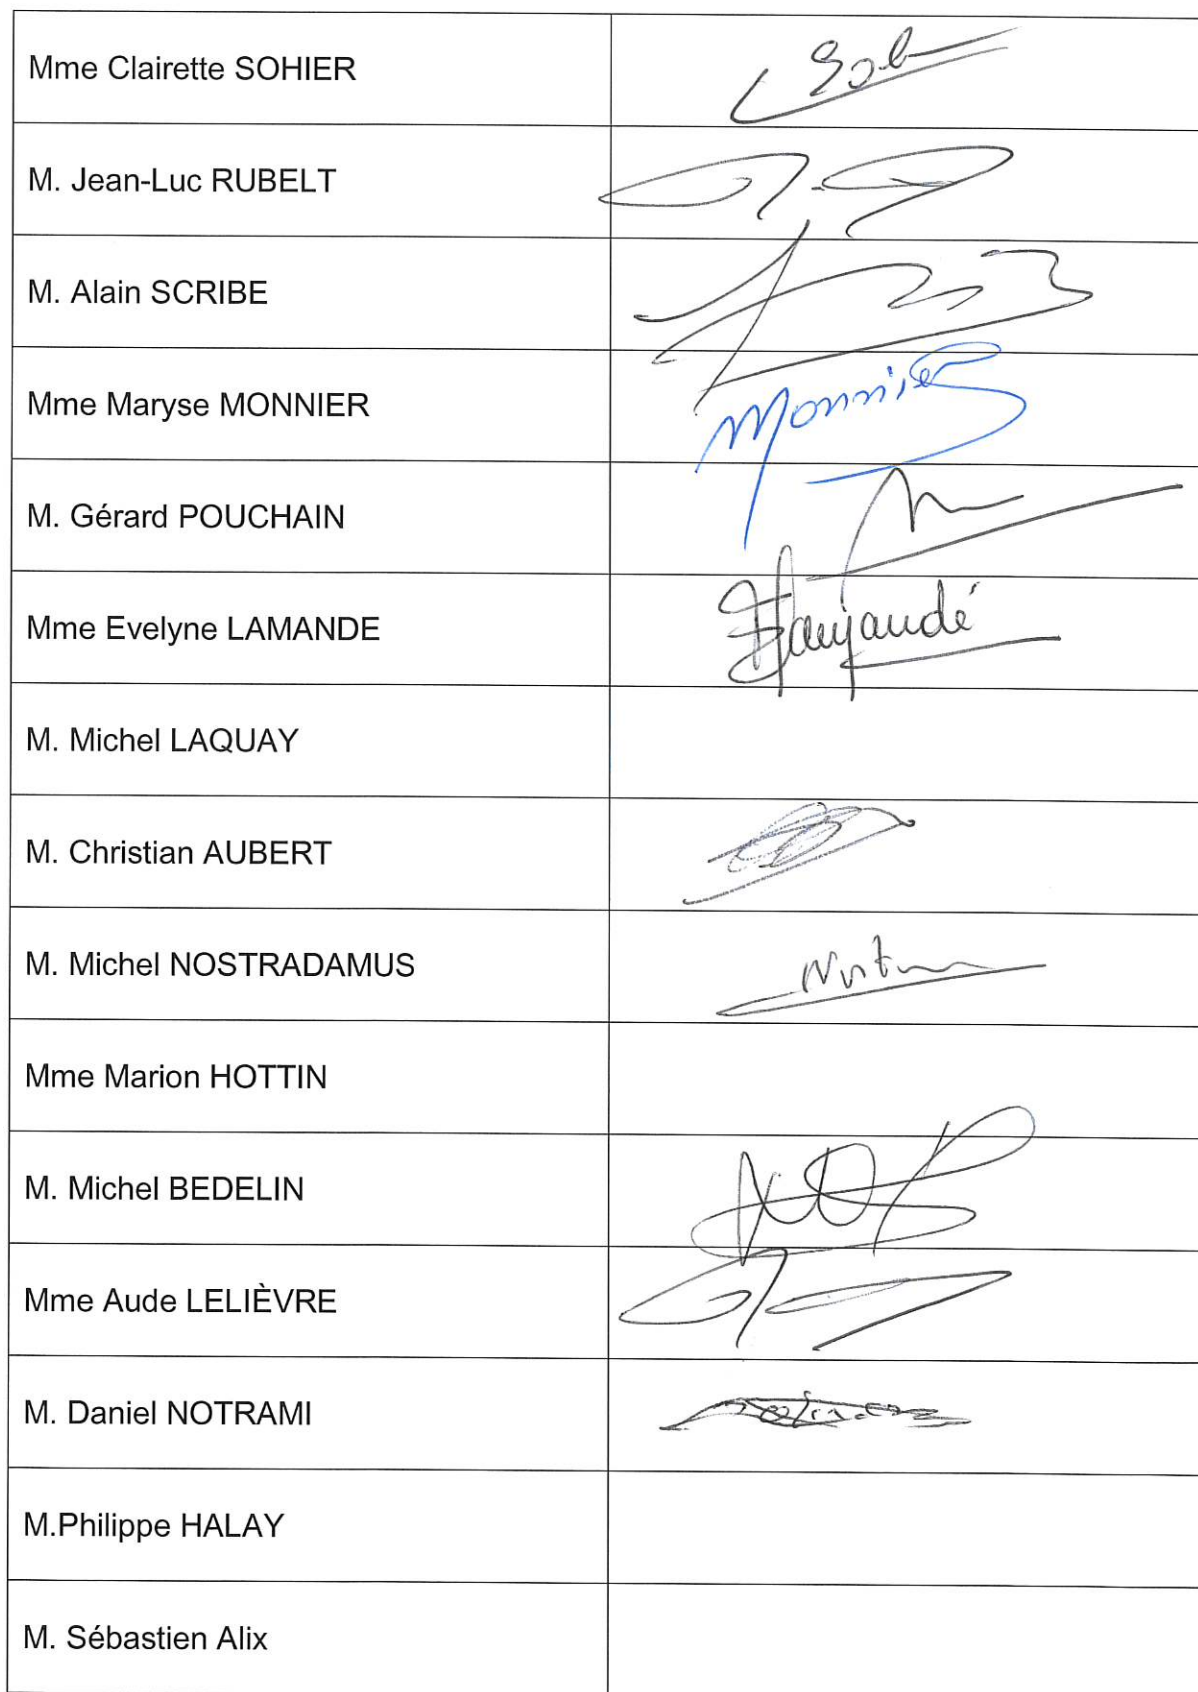 Mme Clairette SOHIER
M. Jean-Luc RUBELT
M. Alain SCRIBE
Mme Maryse MONNIER
Monnier
M. Gérard POUCHAIN
Mme Evelyne LAMANDE
M. Michel LAQUAY
M. Christian AUBERT
M. Michel NOSTRADAMUS
Mme Marion HOTTIN
M. Michel BEDELIN
Mme Aude LELIÈVRE
M. Daniel NOTRAMI
M.Philippe HALAY
M. Sébastien Alix